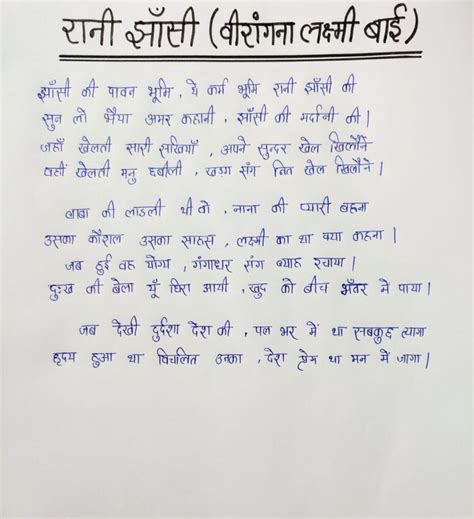 रानी झाँसी (वीरांगना लक्ष्मी बाई)
झाँसी की पावन भूमि, ये कर्म भूमि रानी झाँसी की
सुन लो भैया अमर कहानी, झाँसी की मर्दानी की।
जहाँ खेलती सारी सखियाँ, अपने सुन्दर खेल खिलौने
वहीं खेलती मनु छबीली, खड्ग संग नित खेल खिलौने।
बाबा की लाडली थी वो, नाना की प्यारी बहना
उसका कौशल उसका साहस, लक्ष्मी का था क्या कहना।
जब हुई वह योग्या, गंगाधर संग ब्याह रचाया।
दुःख की बेला यूँ घिरा आयी, खुद को बीच भँवर में पाया।
जब देखी दुर्दशा देश की, पल भर में था सबकुछ त्यागा
हृदय हुआ था विचलित उनका, देश प्रेम था मन में जागा।